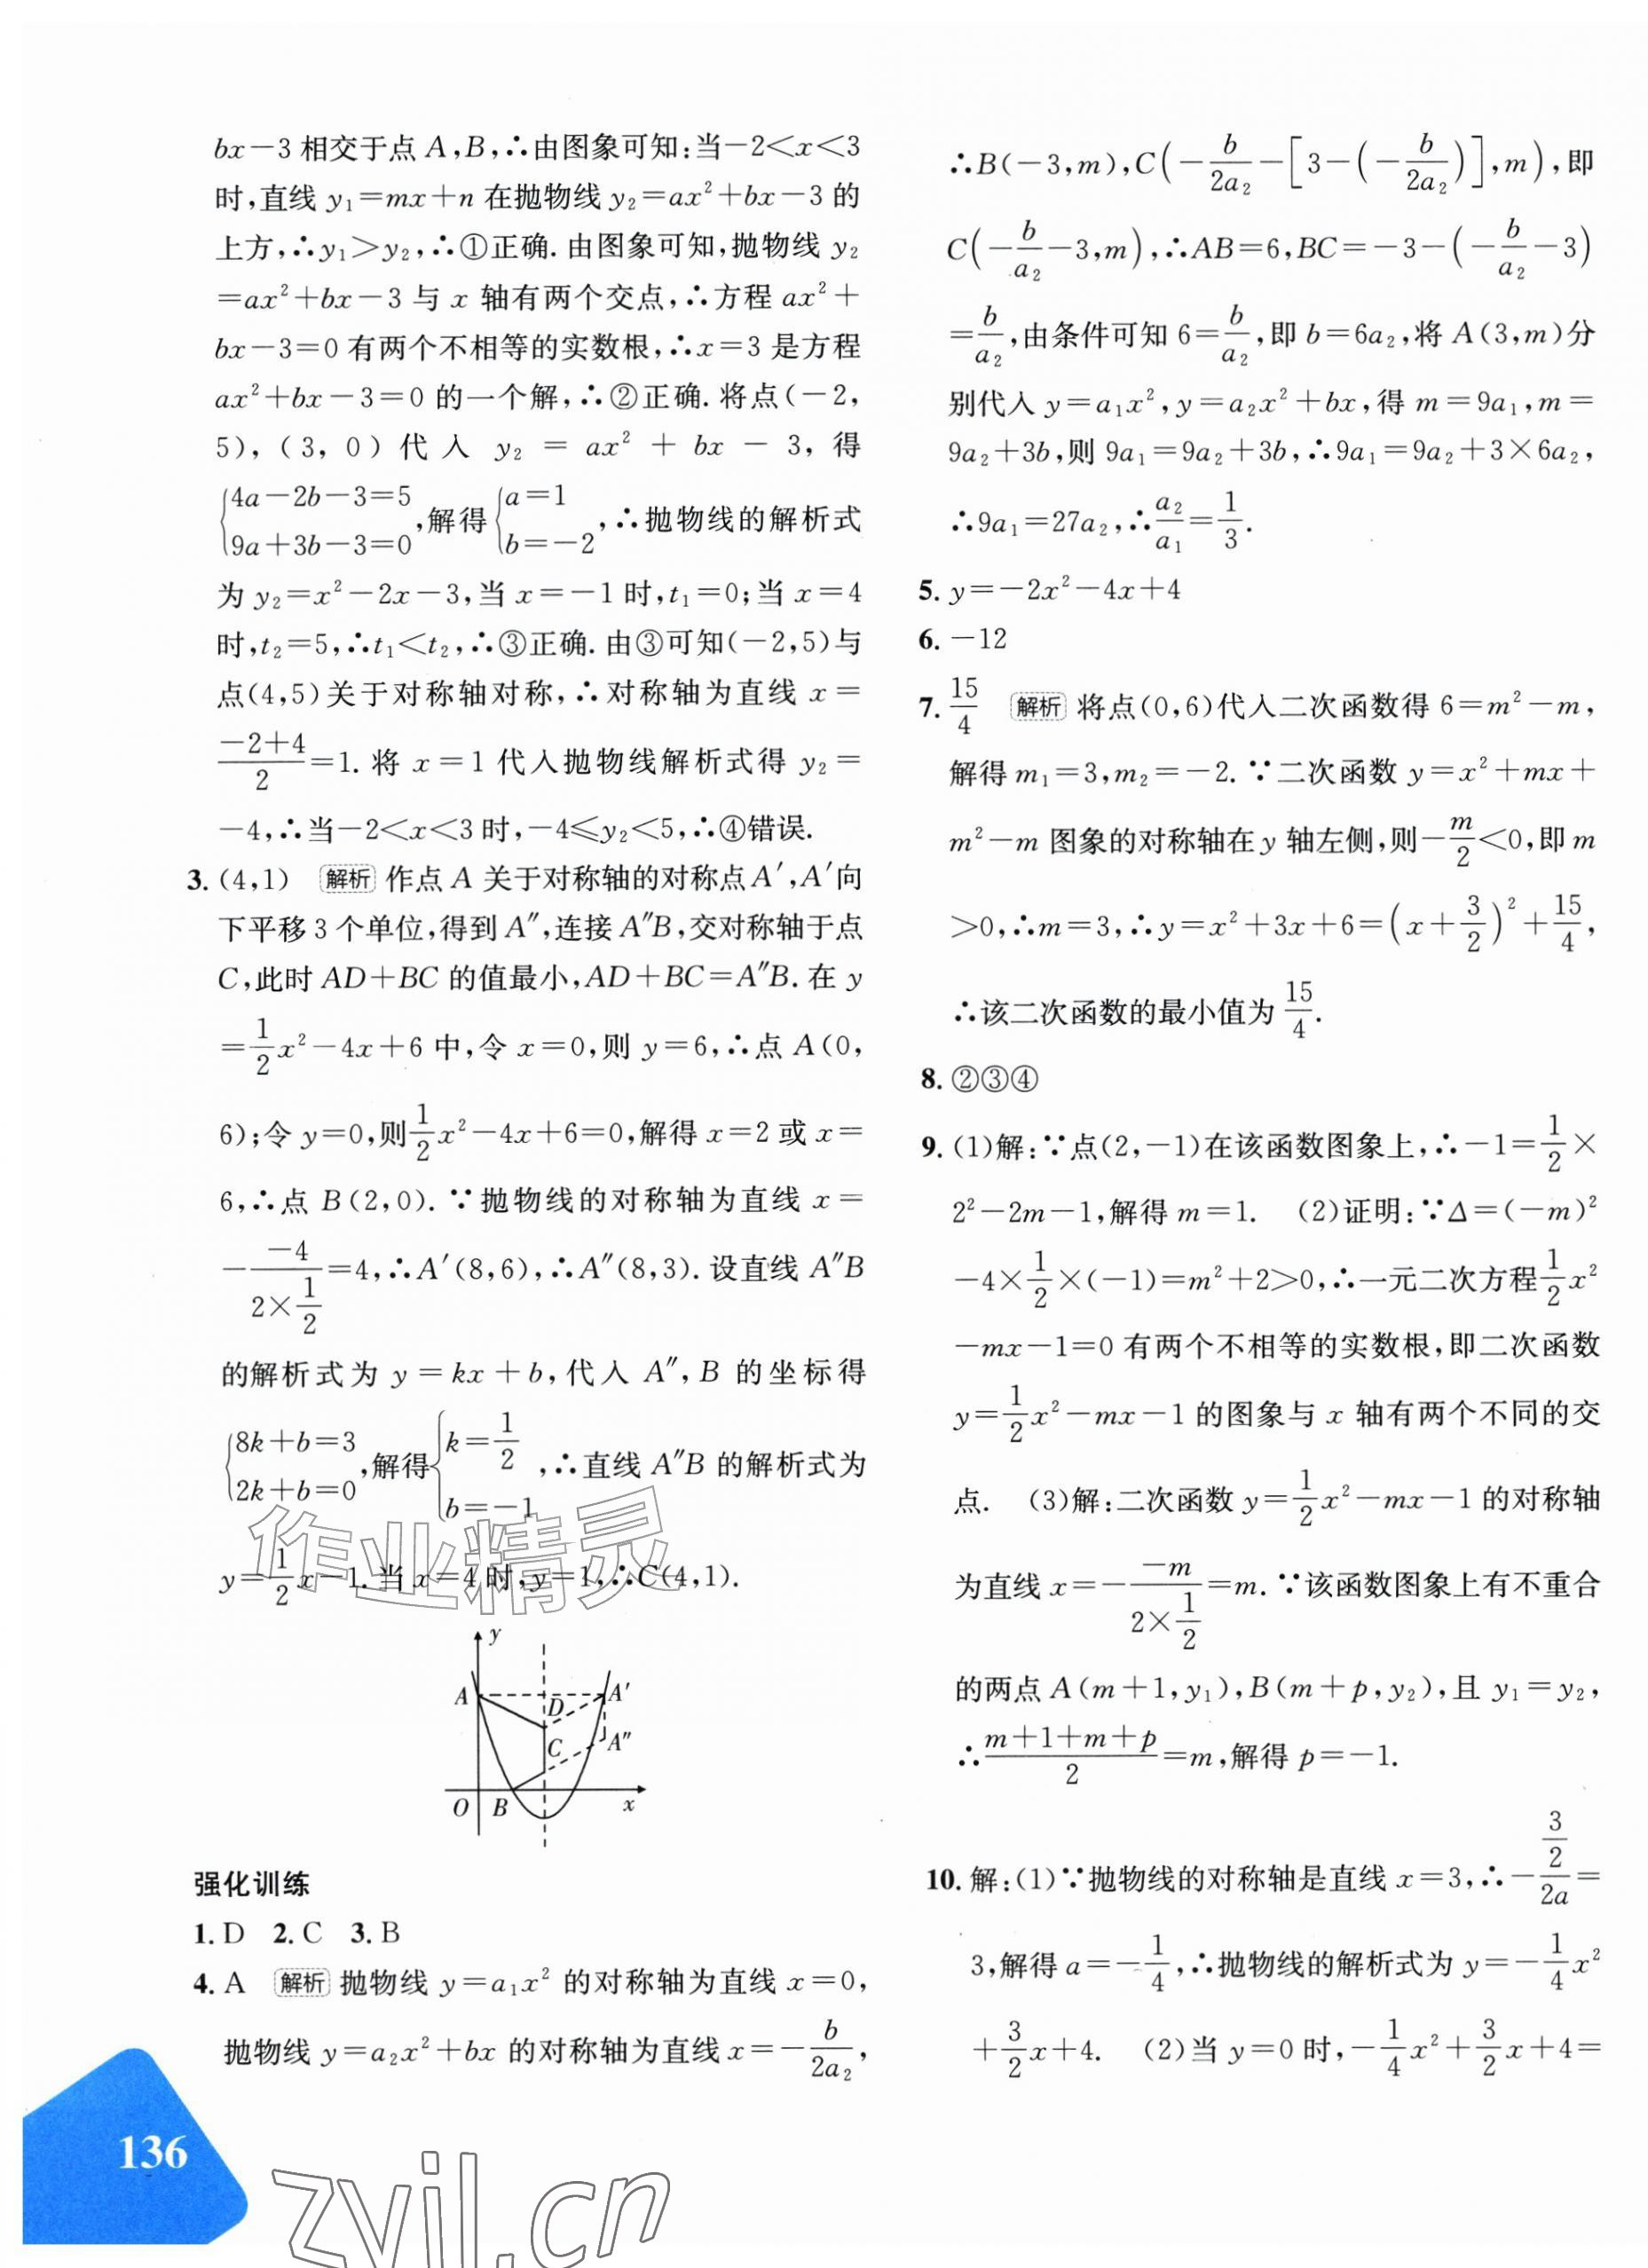 bx-3相交于点 A,B,∴由图象可知:当-2<x<3
时,直线 y₁=mx+n 在抛物线 y₂=ax²+bx-3 的
上方,∴y₁>y₂,∴①正确. 由图象可知,抛物线 y₂
=ax²+bx-3 与 x 轴有两个交点,∴方程 ax²+
bx-3=0 有两个不相等的实数根,∴x=3 是方程
ax²+bx-3=0 的一个解,∴②正确. 将点(-2,
5),(3,0)代入 y₂=ax²+bx-3,得
{4a-2b-3=5 9a+3b-3=0,解得{a=1 b=-2,∴抛物线的解析式
为 y₂=x²-2x-3,当 x=-1 时,t₁=0;当 x=4
时,t₂=5,∴t₁<t₂,∴③正确. 由③可知(-2,5)与
点(4,5)关于对称轴对称,∴对称轴为直线 x=
(-2+4)/2=1. 将 x=1 代入抛物线解析式得 y₂=
-4,∴当-2<x<3 时,-4≤y₂<5,∴④错误.
3. (4,1) 解析 作点 A 关于对称轴的对称点A′,A′向
下平移3个单位,得到 A″,连接 A″B,交对称轴于点
C,此时 AD+BC 的值最小,AD+BC=A″B. 在 y
=1/2x²-4x+6 中,令 x=0,则 y=6,∴点 A(0,
6);令 y=0,则1/2x²-4x+6=0,解得 x=2 或 x=
6,∴点 B(2,0). ∵抛物线的对称轴为直线 x=
-(-4)/(2×1/2)=4,∴A′(8,6),∴A″(8,3). 设直线 A″B
的解析式为 y=kx+b,代入 A″,B 的坐标得
{8k+b=3 2k+b=0,解得{k=1/2 b=-1,∴直线 A″B 的解析式为
y=1/2x-1. 当 x=4 时,y=1,∴C(4,1).
作业精灵
y
A D A′
C A″
O B x
强化训练
1. D 2. C 3. B
4. A 解析 抛物线 y=a₁x² 的对称轴为直线 x=0,
抛物线 y=a₂x²+bx 的对称轴为直线 x=-b/(2a₂),
136
zyjl.cn
∴B(-3,m),C(-b/(2a₂)-[3-(-b/(2a₂))],m),即
C(-b/a₂-3,m),∴AB=6,BC=-3-(-b/a₂-3)
=b/a₂,由条件可知 6=b/a₂,即 b=6a₂,将 A(3,m)分
别代入 y=a₁x²,y=a₂x²+bx,得 m=9a₁,m=
9a₂+3b,则 9a₁=9a₂+3b,∴9a₁=9a₂+3×6a₂,
∴9a₁=27a₂,∴a₂/a₁=1/3.
5. y=-2x²-4x+4
6. -12
7. 15/4 解析 将点(0,6)代入二次函数得 6=m²-m,
解得 m₁=3,m₂=-2. ∵二次函数 y=x²+mx+
m²-m 图象的对称轴在 y 轴左侧,则-m/2<0,即 m
>0,∴m=3,∴y=x²+3x+6=(x+3/2)²+15/4,
∴该二次函数的最小值为15/4.
8. ②③④
9. (1)解:∵点(2,-1)在该函数图象上,∴-1=1/2×
2²-2m-1,解得 m=1. (2)证明:∵Δ=(-m)²
-4×1/2×(-1)=m²+2>0,∴一元二次方程1/2x²
-mx-1=0 有两个不相等的实数根,即二次函数
y=1/2x²-mx-1 的图象与 x 轴有两个不同的交
点. (3)解:二次函数 y=1/2x²-mx-1 的对称轴
为直线 x=-(-m)/(2×1/2)=m. ∵该函数图象上有不重合
的两点 A(m+1,y₁),B(m+p,y₂),且 y₁=y₂,
∴(m+1+m+p)/2=m,解得 p=-1.
10. 解:(1)∵抛物线的对称轴是直线 x=3,∴-(3/2)/(2a)=
3,解得 a=-1/4,∴抛物线的解析式为 y=-1/4x²
+3/2x+4. (2)当 y=0 时,-1/4x²+3/2x+4=